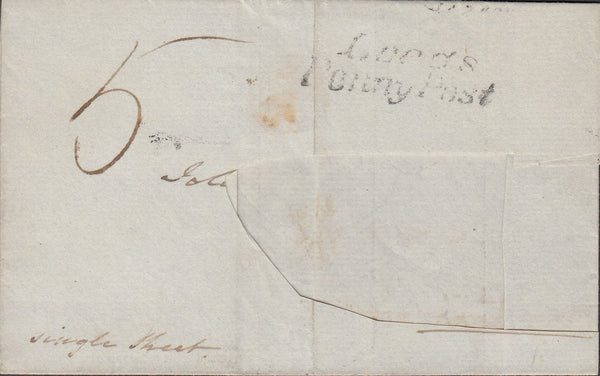 Leeds
Penny Post
5
single sheet.